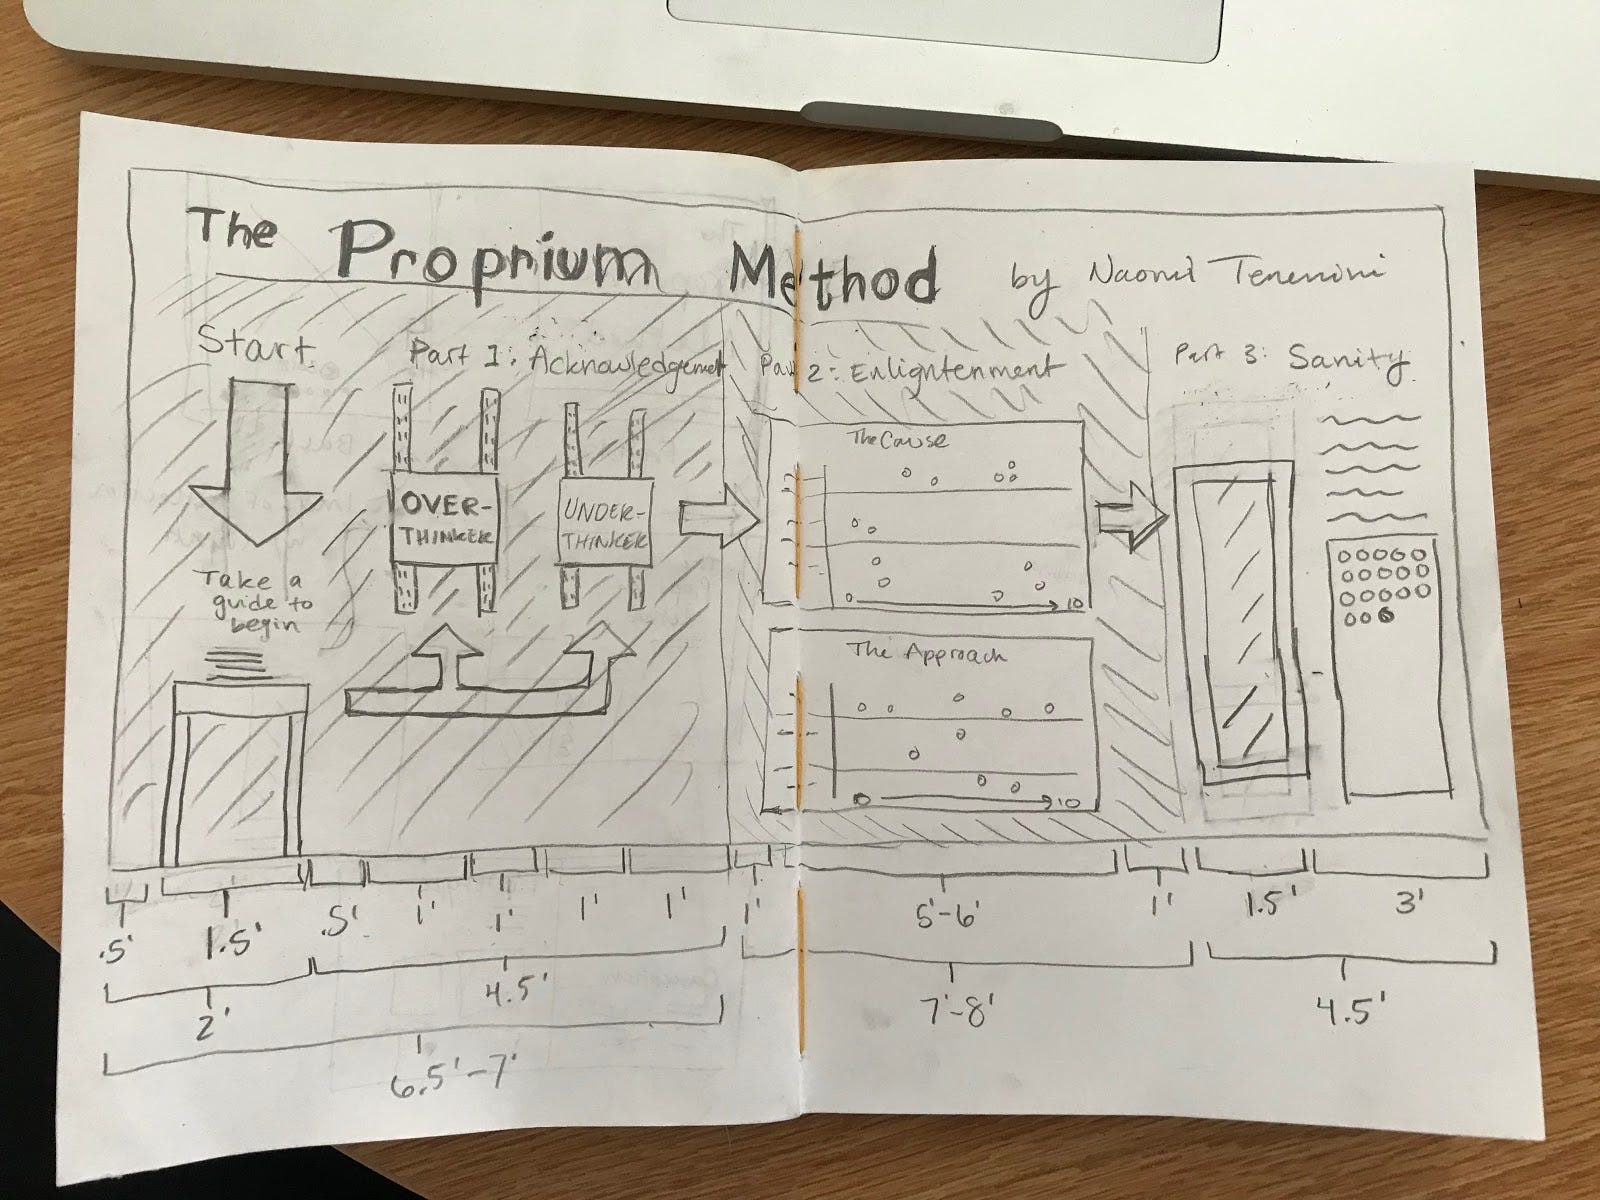 The Proprium Method by Naomi Tenenini
Start
Take a
guide to
begin
Part 1: Acknowledgement
OVER-
THINKER
UNDER-
THINKER
Part 2: Enlightenment
The Cause
10
The Approach
0 10
Part 3: Sanity
.5' 1.5' .5' 1' 1' 1' 1' 1' 5'-6' 1' 1.5' 3'
2' 4.5' 7'-8' 4.5'
6.5'-7'